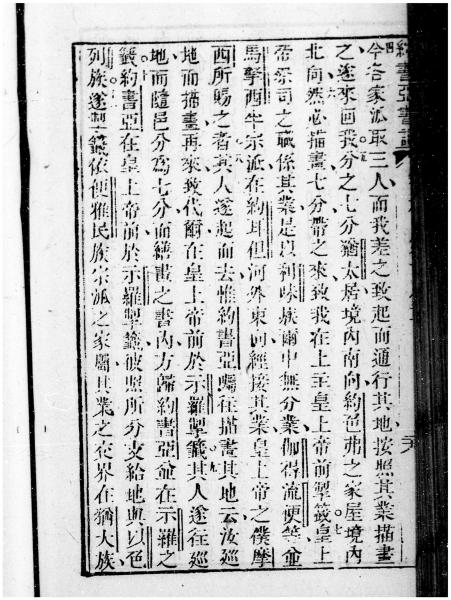 今各家派取三人而我差之致起而通行其地按照其業描畫
之遂來回我分之七分猶太居境內南向約色弗之家屋境內
北向然必描畫七分帶之來致我在上主皇上帝前掣籤皇上
帝祭司之職係其業是以利味族爾中無分業伽得流便等並
馬拿西半宗派在約耳但河外東向經接其業皇上帝之僕摩
西所賜之者其人遂起而去惟約書亞囑往描畫其地云汝巡
地而描畫再來致代爾在皇上帝前於示羅掣籤其人遂往巡
地而隨邑分為七分而繕畫之書內方歸約書亞並在示羅之
籤約書亞在皇上帝前於示羅掣籤彼照所分支給地與以色
列族遂掣籤依便雅民族宗派之家屬其業之衣界在猶大族